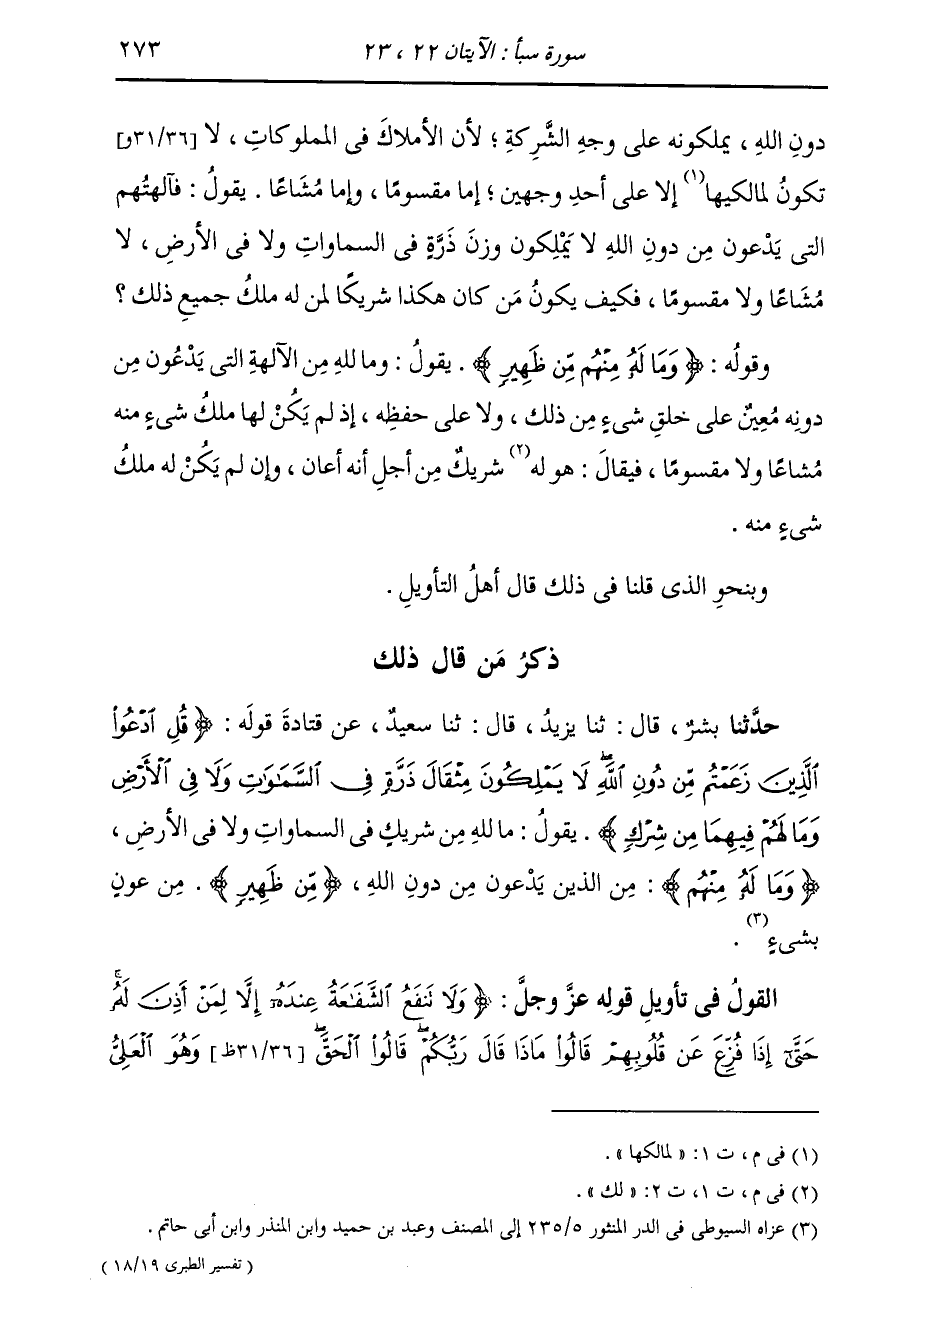 سورة سبأ : الآيتان ٢٢ ، ٢٣ ٢٧٣
دونِ اللهِ ، يملكونه على وجهِ الشَّرِكةِ ؛ لأن الأملاكَ فى المملوكاتِ ، لا [٣١/٣٦و]
تكونُ لمالكيها(١) إلا على أحدِ وجهين ؛ إما مقسومًا ، وإما مُشَاعًا . يقولُ : فآلهتُهم
التى يَدْعون مِن دونِ اللهِ لا يَمْلِكون وزنَ ذَرَّةٍ فى السماواتِ ولا فى الأرضِ ، لا
مُشَاعًا ولا مقسومًا ، فكيف يكونُ مَن كان هكذا شريكًا لمن له ملكُ جميعِ ذلك ؟
وقولُه : ﴿ وَمَا لَهُۥ مِنْهُم مِّن ظَهِيرٍ ﴾ . يقولُ : وما للهِ مِن الآلهةِ التى يَدْعُون مِن
دونِه مُعِينٌ على خلقِ شىءٍ مِن ذلك ، ولا على حفظِه ، إذ لم يَكُنْ لها ملكُ شىءٍ منه
مُشاعًا ولا مقسومًا ، فيقالَ : هو له(٢) شريكٌ مِن أجلِ أنه أعان ، وإن لم يَكُنْ له ملكُ
شىءٍ منه .
وبنحوِ الذى قلنا فى ذلك قال أهلُ التأويلِ .
ذكرُ مَن قال ذلك
حدَّثنا بشرٌ ، قال : ثنا يزيدُ ، قال : ثنا سعيدٌ ، عن قتادةَ قولَه : ﴿ قُلِ ٱدْعُوا۟
ٱلَّذِينَ زَعَمْتُم مِّن دُونِ ٱللَّهِۖ لَا يَمْلِكُونَ مِثْقَالَ ذَرَّةٍ فِى ٱلسَّمَٰوَٰتِ وَلَا فِى ٱلْأَرْضِ
وَمَا لَهُمْ فِيهِمَا مِن شِرْكٍ ﴾ . يقولُ : ما للهِ مِن شريكٍ فى السماواتِ ولا فى الأرضِ ،
﴿ وَمَا لَهُۥ مِنْهُم ﴾ : مِن الذين يَدْعون مِن دونِ اللهِ ، ﴿ مِّن ظَهِيرٍ ﴾ . مِن عونٍ
بشىءٍ(٣) .
القولُ فى تأويلِ قولِه عزَّ وجلَّ : ﴿ وَلَا تَنفَعُ ٱلشَّفَٰعَةُ عِندَهُۥٓ إِلَّا لِمَنْ أَذِنَ لَهُۥۚ
حَتَّىٰٓ إِذَا فُزِّعَ عَن قُلُوبِهِمْ قَالُوا۟ مَاذَا قَالَ رَبُّكُمْۖ قَالُوا۟ ٱلْحَقَّۖ [٣١/٣٦ظ] وَهُوَ ٱلْعَلِىُّ
(١) فى م ، ت ١ : « لمالكها » .
(٢) فى م ، ت ١ ، ت ٢ : « لك » .
(٣) عزاه السيوطى فى الدر المنثور ٢٣٥/٥ إلى المصنف وعبد بن حميد وابن المنذر وابن أبى حاتم .
( تفسير الطبرى ١٨/١٩ )